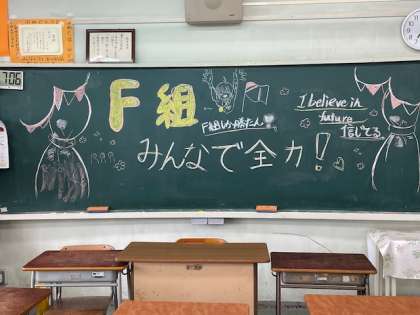 706
F組
F組しか勝たん
I believe in
future
信じてる
みんなで全力!